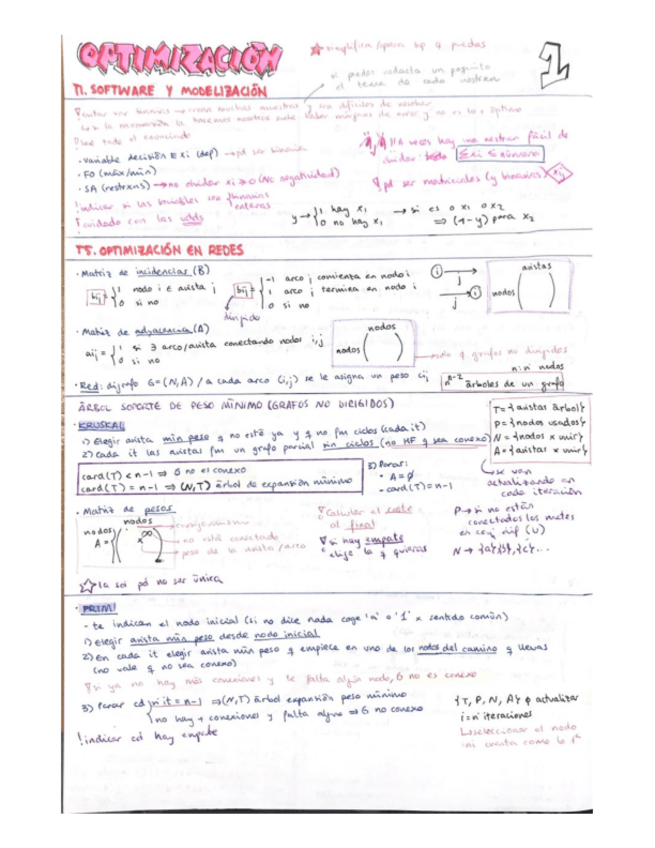 OPTIMIZACIÓN
1
☆ simplifica
si puedes redacta un poquito
el tema de cada
T1. SOFTWARE Y MODELIZACIÓN
lee todo el enunciado
· variable decisión ∃ xi (dep) → pd ser binaria
· FO (máx/min)
· SA (restrxns) → no olvidar xi ≥ 0 (No negatividad)
! indicar si las variables son binarias
enteras
! cuidado con las udds
A veces hay una restrxn fácil de
olvidar: Σxi ≤ número
pd ser matriciales (y binarias) xij
y → { 1 hay x₁
0 no hay x₁
→ si es o x₁ o x₂
⇒ (1-y) para x₂
T5. OPTIMIZACIÓN EN REDES
· Matriz de incidencias (B)
bij = { 1 nodo i ∈ arista j
0 si no
bij = { -1 arco j comienza en nodo i
1 arco j termina en nodo i
0 si no
dirigido
aristas
nodos ( )
· Matriz de adyacencia (A)
aij = { 1 si ∃ arco/arista conectando nodos i,j
0 si no
nodos
nodos ( )
solo q grafos no dirigidos
n: nº nodos
· Red: digrafo G=(N,A) / a cada arco (i,j) se le asigna un peso cij
nⁿ⁻² árboles de un grafo
ÁRBOL SOPORTE DE PESO MÍNIMO (GRAFOS NO DIRIGIDOS)
· KRUSKAL
1) Elegir arista min peso q no esté ya y q no fm ciclos (cada it)
2) Cada it las aristas fm un grafo parcial sin ciclos (no HF q sea conexo)
T = {aristas árbol}
P = {nodos usados}
N = {nodos x unir}
A = {aristas x unir}
card(T) < n-1 ⇒ G no es conexo
card(T) = n-1 ⇒ (N,T) árbol de expansión mínimo
3) Parar:
· A = ∅
- card(T) = n-1
se van
actualizando en
cada iteración
· Matriz de pesos
nodos
nodos
A =
∞
no está conectado
peso de la arista/arco
Calcular el coste
al final
si hay empate
elige la q quieras
P → si no están
conectados los metes
en conj dif (U)
N → {a}{b},{c}...
☆ la sol pd no ser única
· PRIM
- te indican el nodo inicial (si no dice nada coge 'a' o '1' x sentido común)
1) Elegir arista min peso desde nodo inicial
2) En cada it elegir arista min peso q empiece en uno de los nodos del camino q llevas
(no vale q no sea conexo)
si ya no hay más conexiones y te falta algún nodo, G no es conexo
3) Parar cd { nº it = n-1 ⇒ (N,T) árbol expansión peso mínimo
no hay + conexiones y falta alguno ⇒ G no conexo
! indicar cd hay empate
{T, P, N, A} actualizar
i = nº iteraciones
seleccionar el nodo
ini cuenta como la 1ª